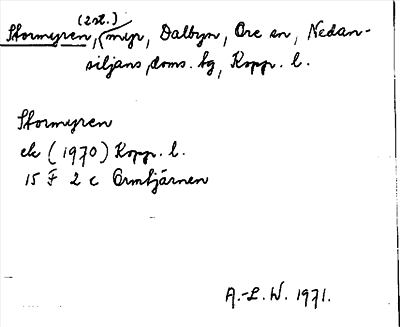 (2 st.)
Stormyren, myr, Dalbyn, Ore sn, Nedan-
siljans doms. tg, Kopp. l.
Stormyren
ek (1970) Kopp. l.
15 F 2 c Ormtjärnen
A.-L. W. 1971.